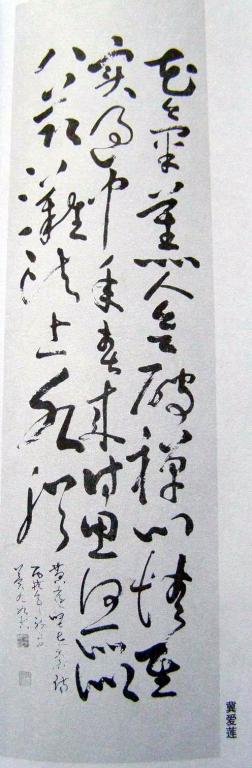 花氣薰人欲破禅心情其
实过中年春来诗思何所似
八节滩头上水船
黄庭坚
丙戌年
冀爱莲